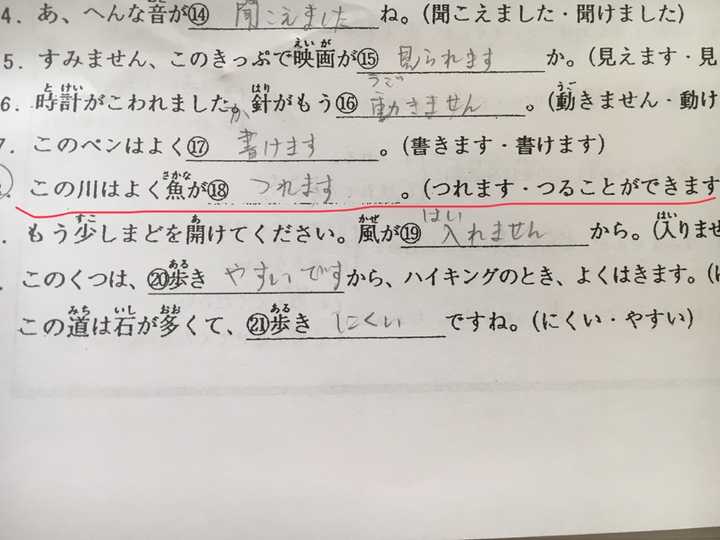 4. あ、へんな音が⑭ 聞こえました ね。(聞こえました・聞けました)
5. すみません、このきっぷで映画が⑮ 見られます か。(見えます・見
6. 時計がこわれましたか、針がもう⑯ 動きません 。(動きません・動け
7. このペンはよく⑰ 書けます 。(書きます・書けます)
. この川はよく魚が⑱ つれます 。(つれます・つることができます
. もう少しまどを開けてください。風が⑲ 入れません から。(入りませ
. このくつは、⑳歩き やすいです から、ハイキングのとき、よくはきます。(
この道は石が多くて、㉑歩き にくい ですね。(にくい・やすい)